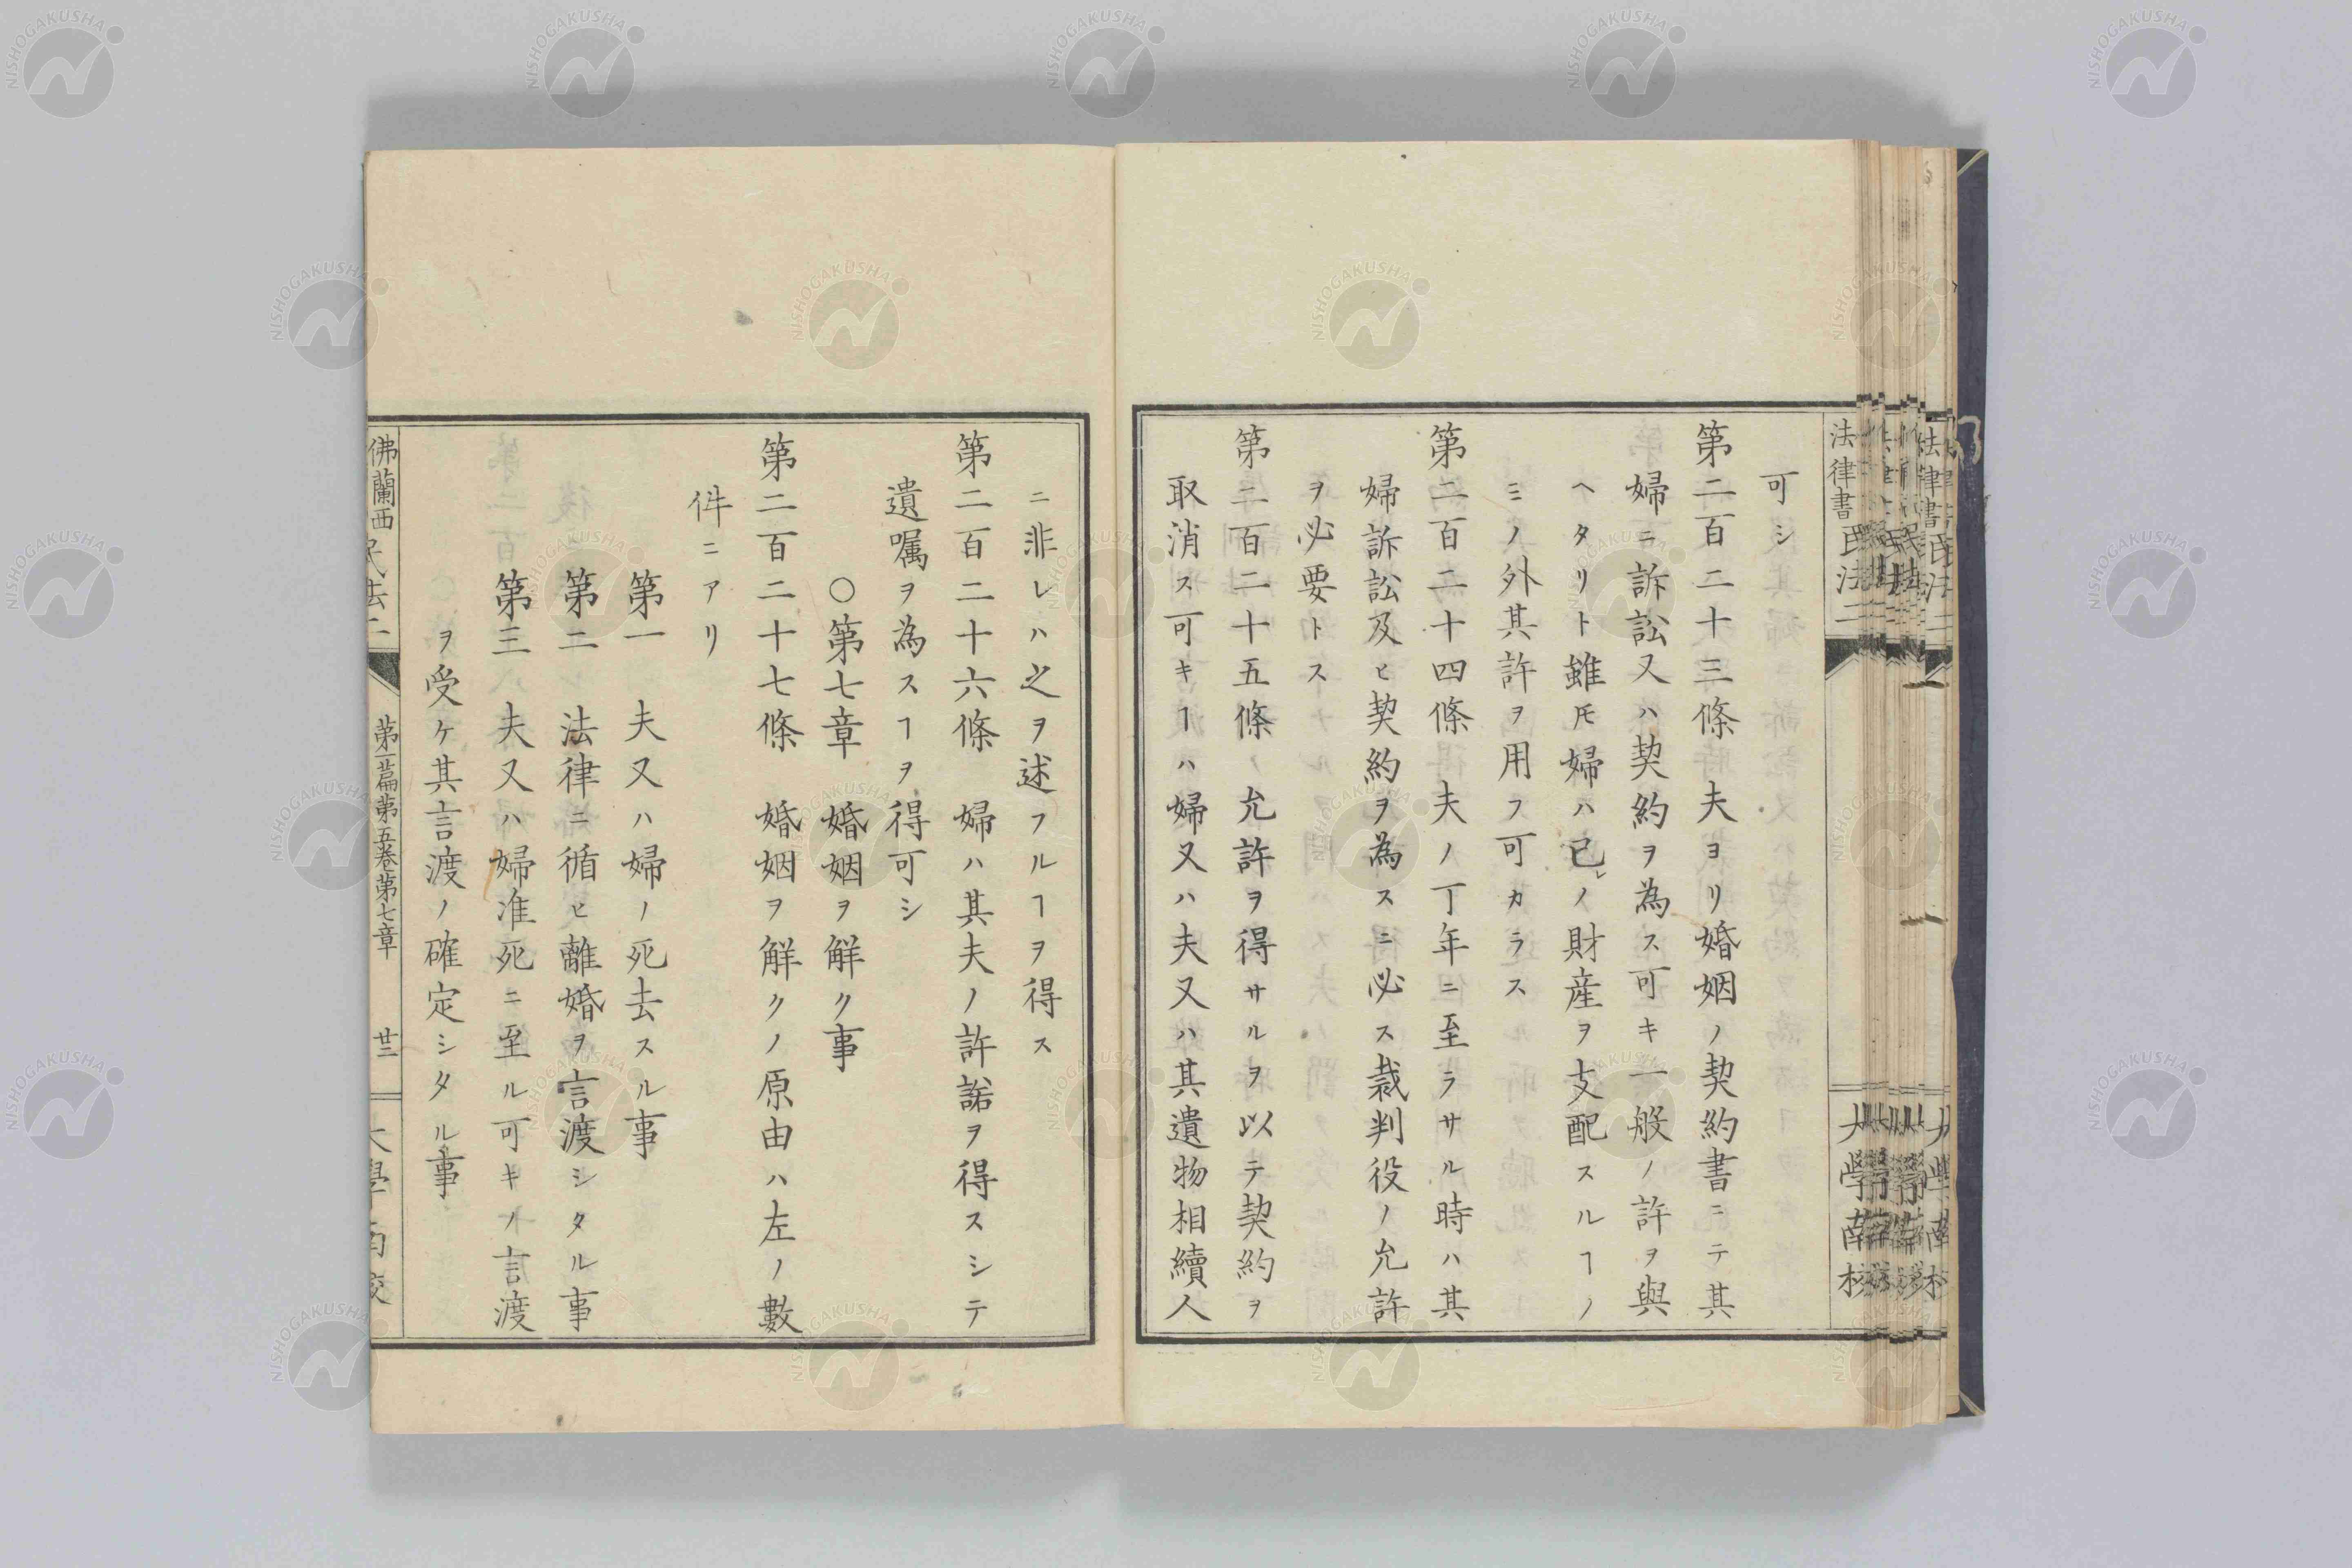 可シ
第二百二十三條　夫ヨリ婚姻ノ契約書ニテ其
婦ニ訴訟又ハ契約ヲ為ス可キ一般ノ許ヲ與
ヘタリト雖𪜈婦ハ已レノ財産ヲ支配スルヿノ
ミノ外其許ヲ用フ可カラス
第二百二十四條　夫ノ丁年ニ至ラサル時ハ其
婦訴訟及ヒ契約ヲ為スニ必ス裁判役ノ允許
ヲ必要トス
第二百二十五條ノ允許ヲ得サルヲ以テ契約ヲ
取消ス可キヿハ婦又ハ夫又ハ其遺物相續人
ニ非レハ之ヲ述フルヿヲ得ス
第二百二十六條　婦ハ其夫ノ許諾ヲ得スシテ
遺嘱ヲ為スヿヲ得可シ
○第七章　婚姻ヲ解ク事
第二百二十七條　婚姻ヲ解クノ原由ハ左ノ數
件ニアリ
第一　夫又ハ婦ノ死去スル事
第二　法律ニ循ヒ離婚ヲ言渡シタル事
第三　夫又ハ婦准死ニ至ル可キノ言渡
ヲ受ケ其言渡ノ確定シタル事
法律書　民法二
大學南校
佛蘭西民法二
第一篇第五巻第七章
廿三
大學南校
NISHOGAKUSHA